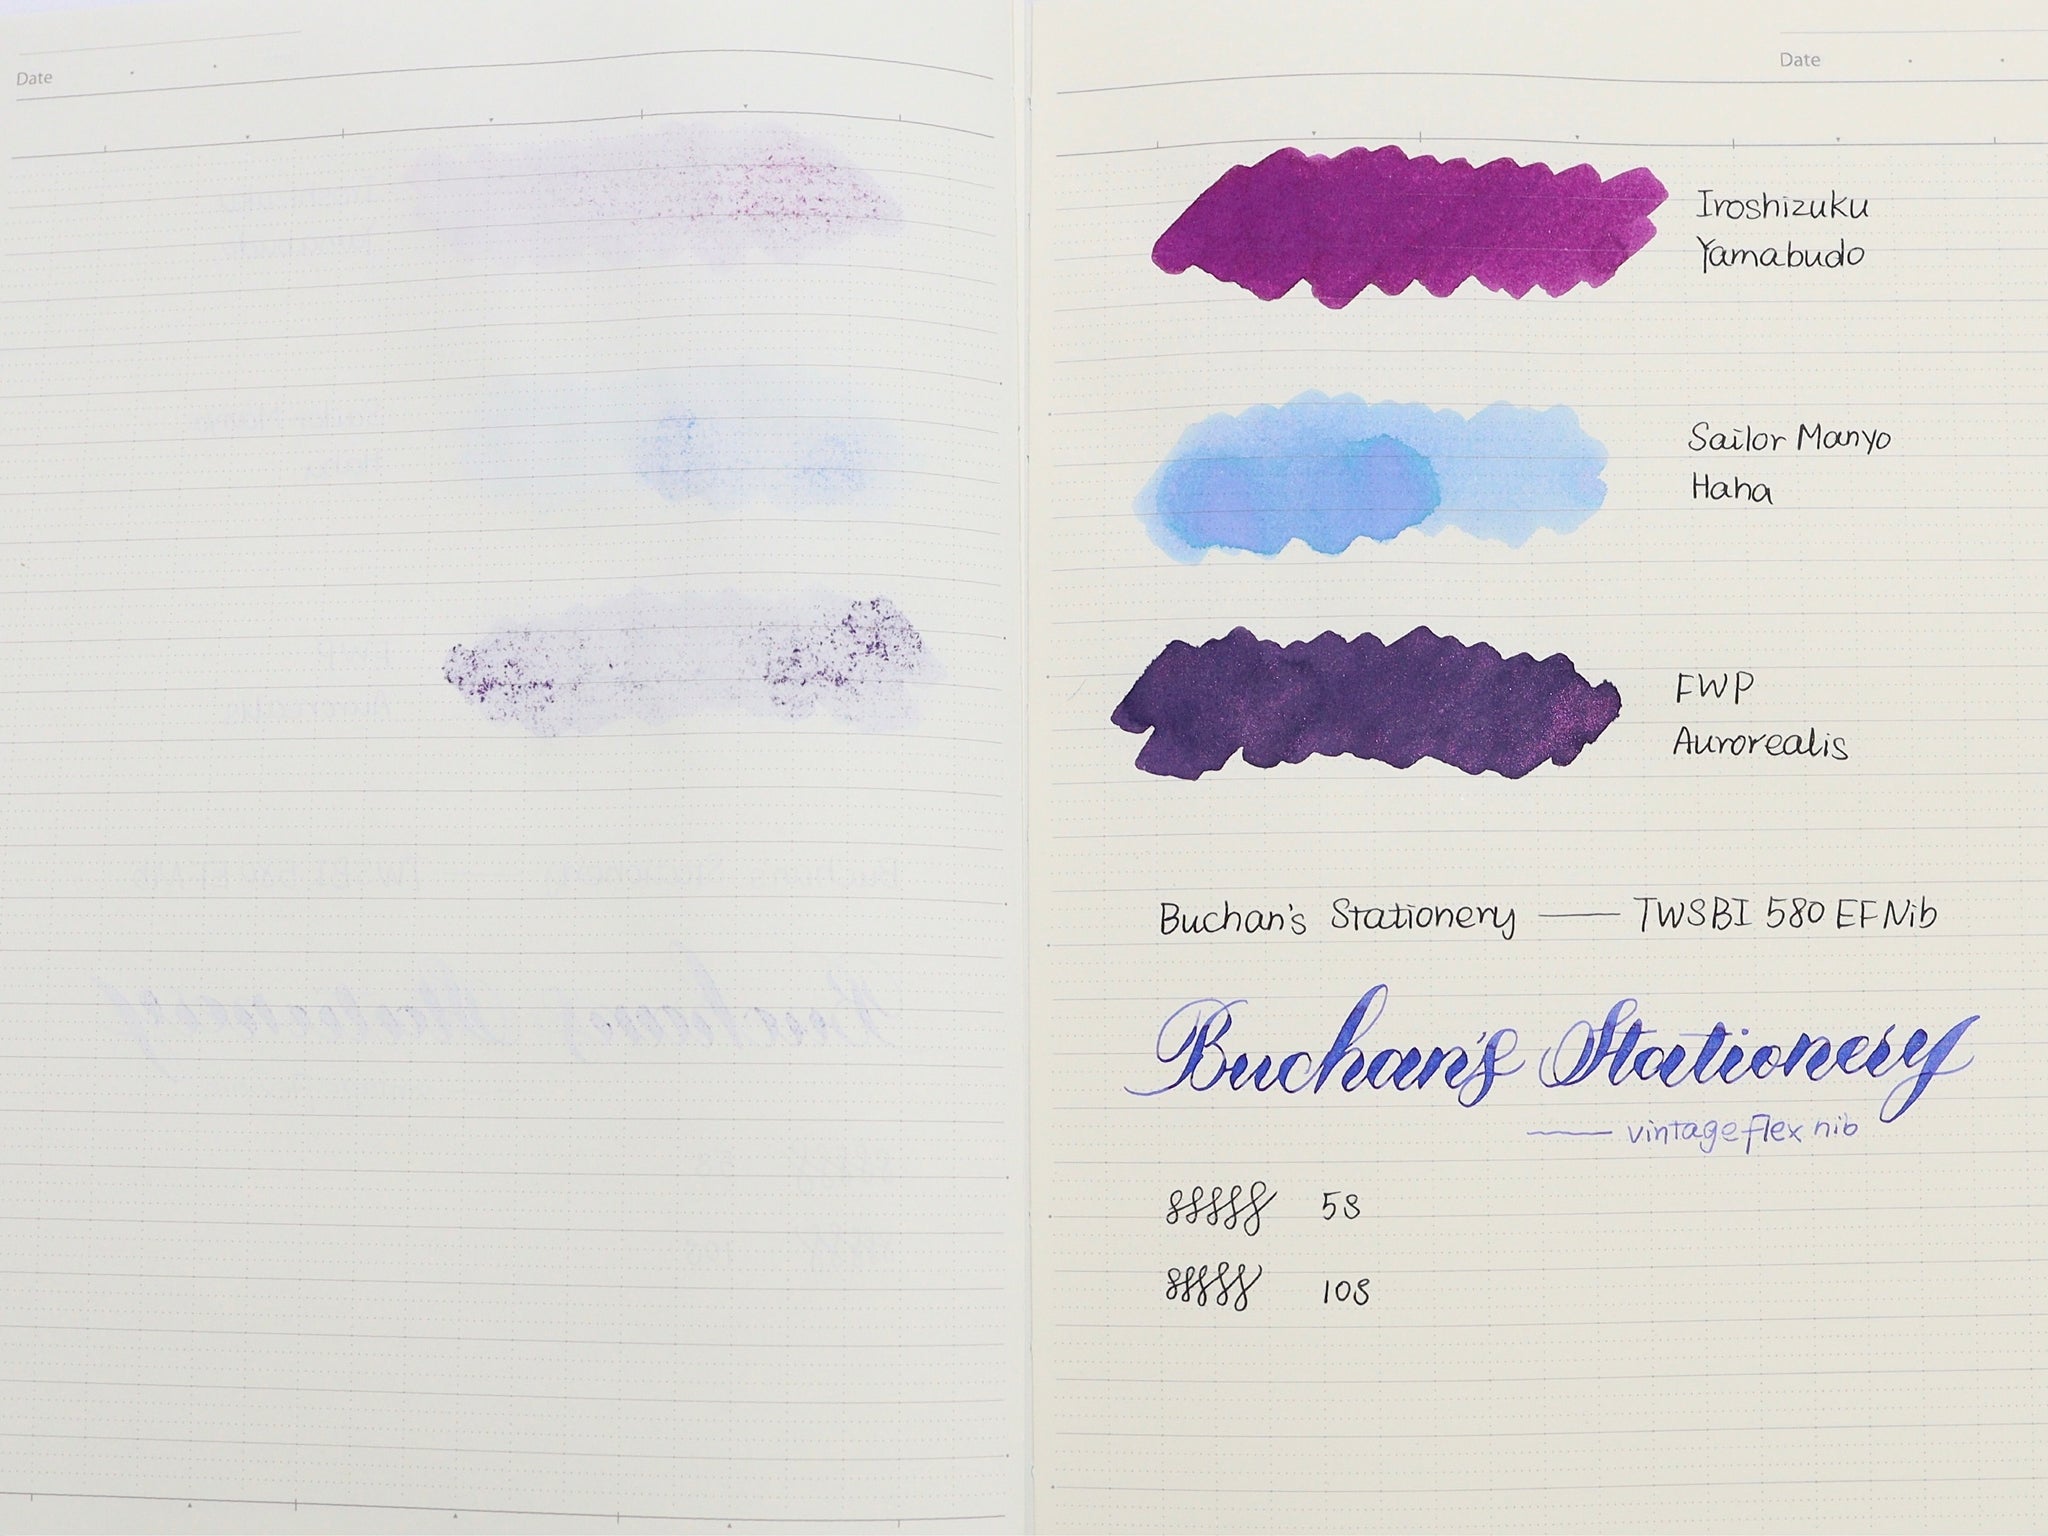 Date
Date
Iroshizuku
Yamabudo
Sailor Manyo
Haha
FWP
Aurorealis
Buchan's Stationery — TWSBI 580 EF Nib
Buchan's Stationery
— vintage flex nib
5S
10S